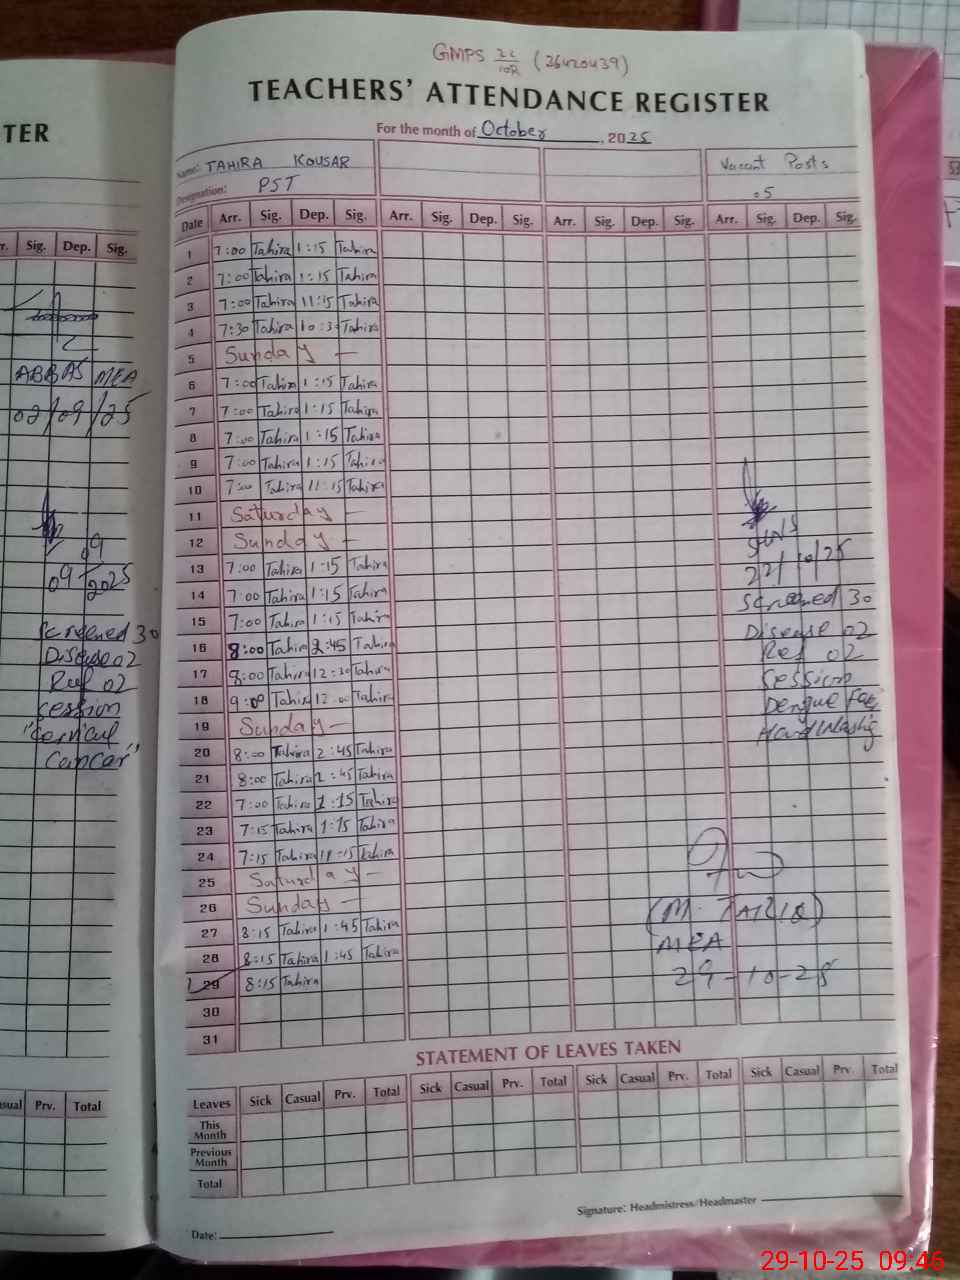 TER
r. Sig. Dep. Sig.
ABBAS MEA
02/09/25
09
09 2025
Screened 30
Disease 02
Ref 02
session
"cervical
Cancar"
sual Prv. Total
GMPS 22/10R (36420439)
TEACHERS' ATTENDANCE REGISTER
For the month of October, 2025
Name: TAHIRA KOUSAR
Vacant Posts
Designation: PST
05
Date Arr. Sig. Dep. Sig. Arr. Sig. Dep. Sig. Arr. Sig. Dep. Sig. Arr. Sig. Dep. Sig.
1 7:00 Tahira 1:15 Tahira
2 7:00 Tahira 1:15 Tahira
3 7:00 Tahira 11:15 Tahira
4 7:30 Tahira 10:30 Tahira
5 Sunday —
6 7:00 Tahira 1:15 Tahira
7 7:00 Tahira 1:15 Tahira
8 7:00 Tahira 1:15 Tahira
9 7:00 Tahira 1:15 Tahira
10 7:00 Tahira 11:15 Tahira
11 Saturday —
12 Sunday —
13 7:00 Tahira 1:15 Tahira
14 7:00 Tahira 1:15 Tahira
15 7:00 Tahira 1:15 Tahira
16 8:00 Tahira 2:45 Tahira
17 8:00 Tahira 12:30 Tahira
18 9:00 Tahira 12:00 Tahira
19 Sunday —
20 8:00 Tahira 2:45 Tahira
21 8:00 Tahira 2:45 Tahira
22 7:00 Tahira 1:15 Tahira
23 7:15 Tahira 1:15 Tahira
24 7:15 Tahira 11:15 Tahira
25 Saturday —
26 Sunday —
27 8:15 Tahira 1:45 Tahira
28 8:15 Tahira 1:45 Tahira
29 8:15 Tahira
30
31
22/10/25
Screened 30
Disease 02
Ref 02
Session
Dengue
(M. TARIQ)
MEA
29-10-25
STATEMENT OF LEAVES TAKEN
Leaves Sick Casual Prv. Total Sick Casual Prv. Total Sick Casual Prv. Total Sick Casual Prv. Total
This Month
Previous Month
Total
Signature: Headmistress/Headmaster
Date:
29-10-25 09:46